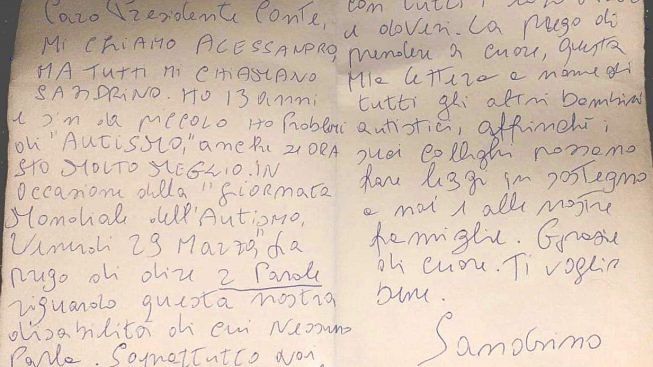 Caro Presidente Conte,
MI CHIAMO ALESSANDRO,
MA TUTTI MI CHIAMANO
SANDRINO. HO 13 anni
e sin da piccolo HO Problemi
di "AUTISMO", anche se ORA
STO MOLTO MEGLIO. IN
Occasione della "Giornata
Mondiale dell'Autismo,
Venerdì 29 Marzo", La
prego di dire 2 Parole
riguardo questa nostra
disabilità di cui Nessuno
Parla. Soprattutto noi,
con tutti i
e doveri. La prego di
prendere a cuore, questa
Mia lettera a nome di
tutti gli altri bambini
autistici, affinché i
suoi colleghi possano
fare leggi in sostegno
a noi e alle nostre
famiglie. Grazie
di cuore. Ti voglio
bene.
Sandrino